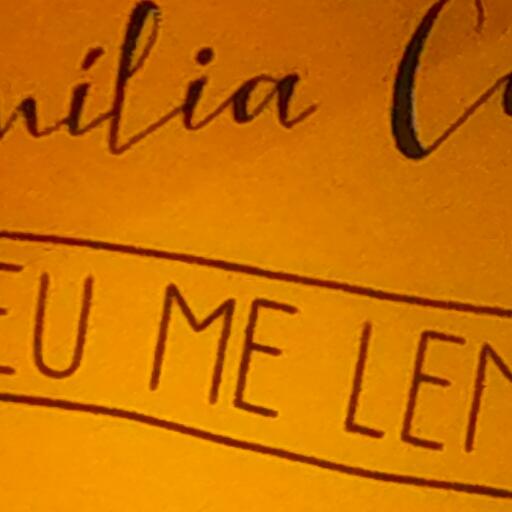 mília C
EU ME LEM